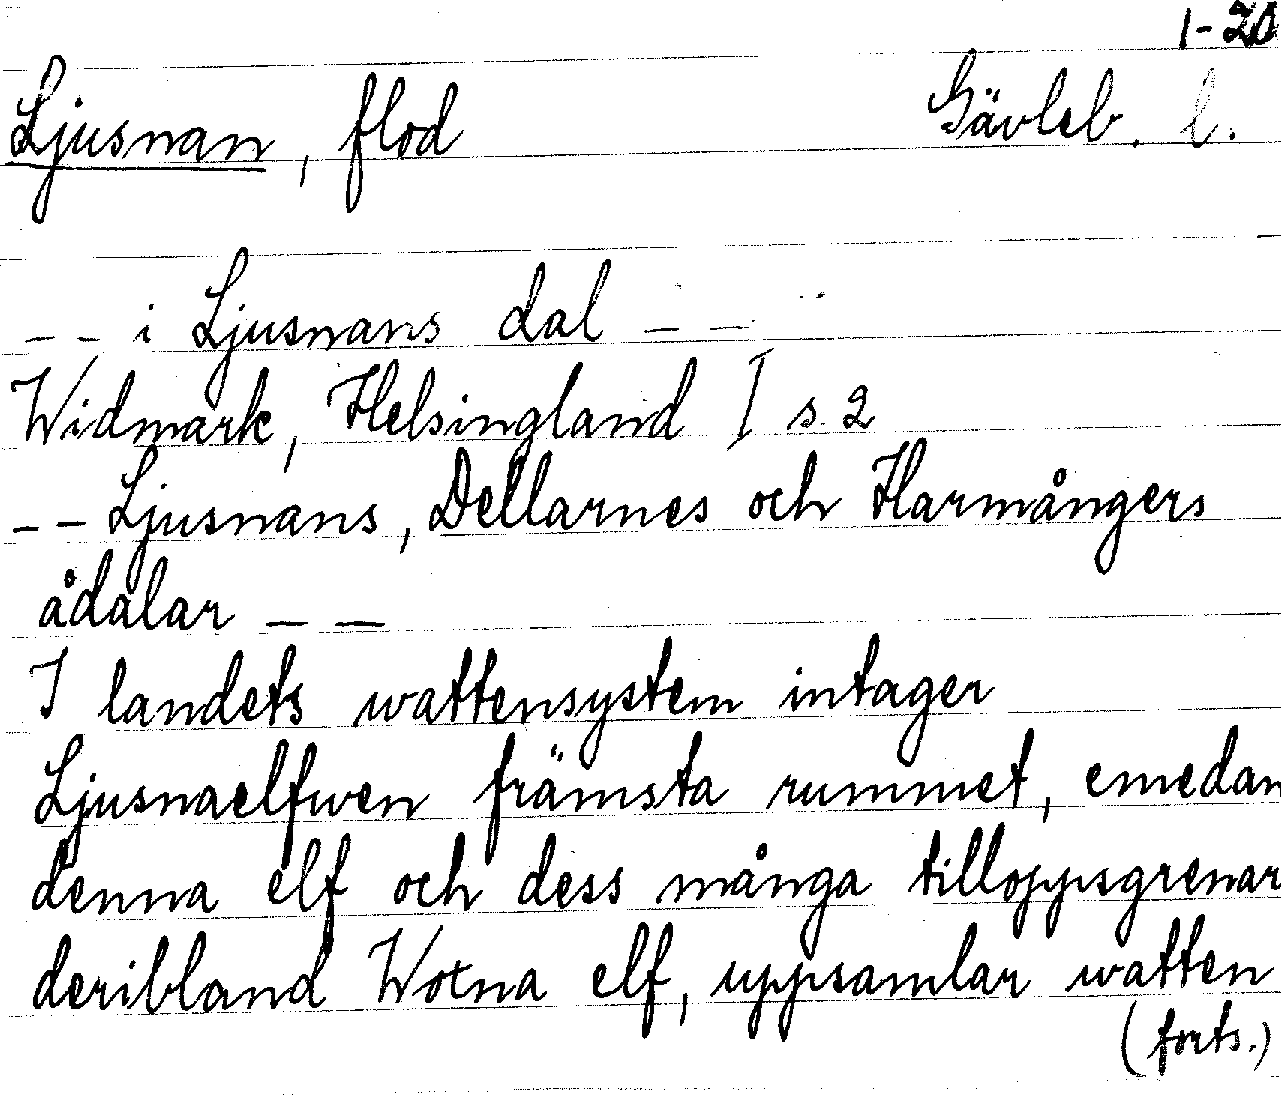 1-20
Ljusnan, flod Gävleb. l.
-- i Ljusnans dal --
Widmark, Helsingland I s. 2
-- Ljusnans, Dellarnes och Harmångers
ådalar --
I landets wattensystem intager
Ljusnaelfwen främsta rummet, emedan
denna elf och dess många tilloppsgrenar
deribland Wotna elf, uppsamlar watten
(forts.)